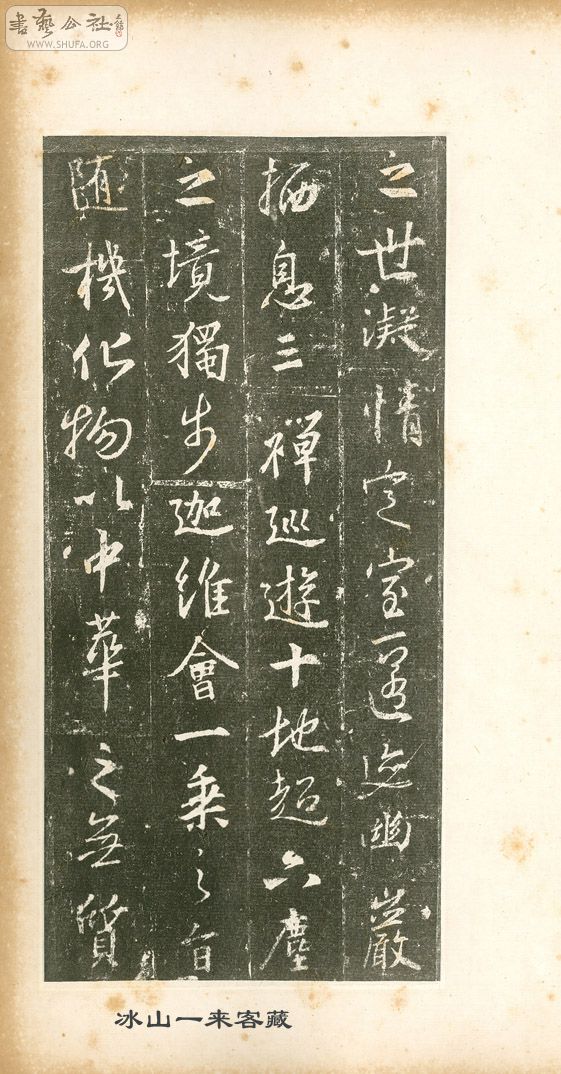 書藝公社
WWW.SHUFA.ORG
之世凝情定室匿迹幽巖
栖息三禪巡遊十地超六塵
之境獨步迦維會一乘之旨
随機化物以中華之無質
冰山一来客藏